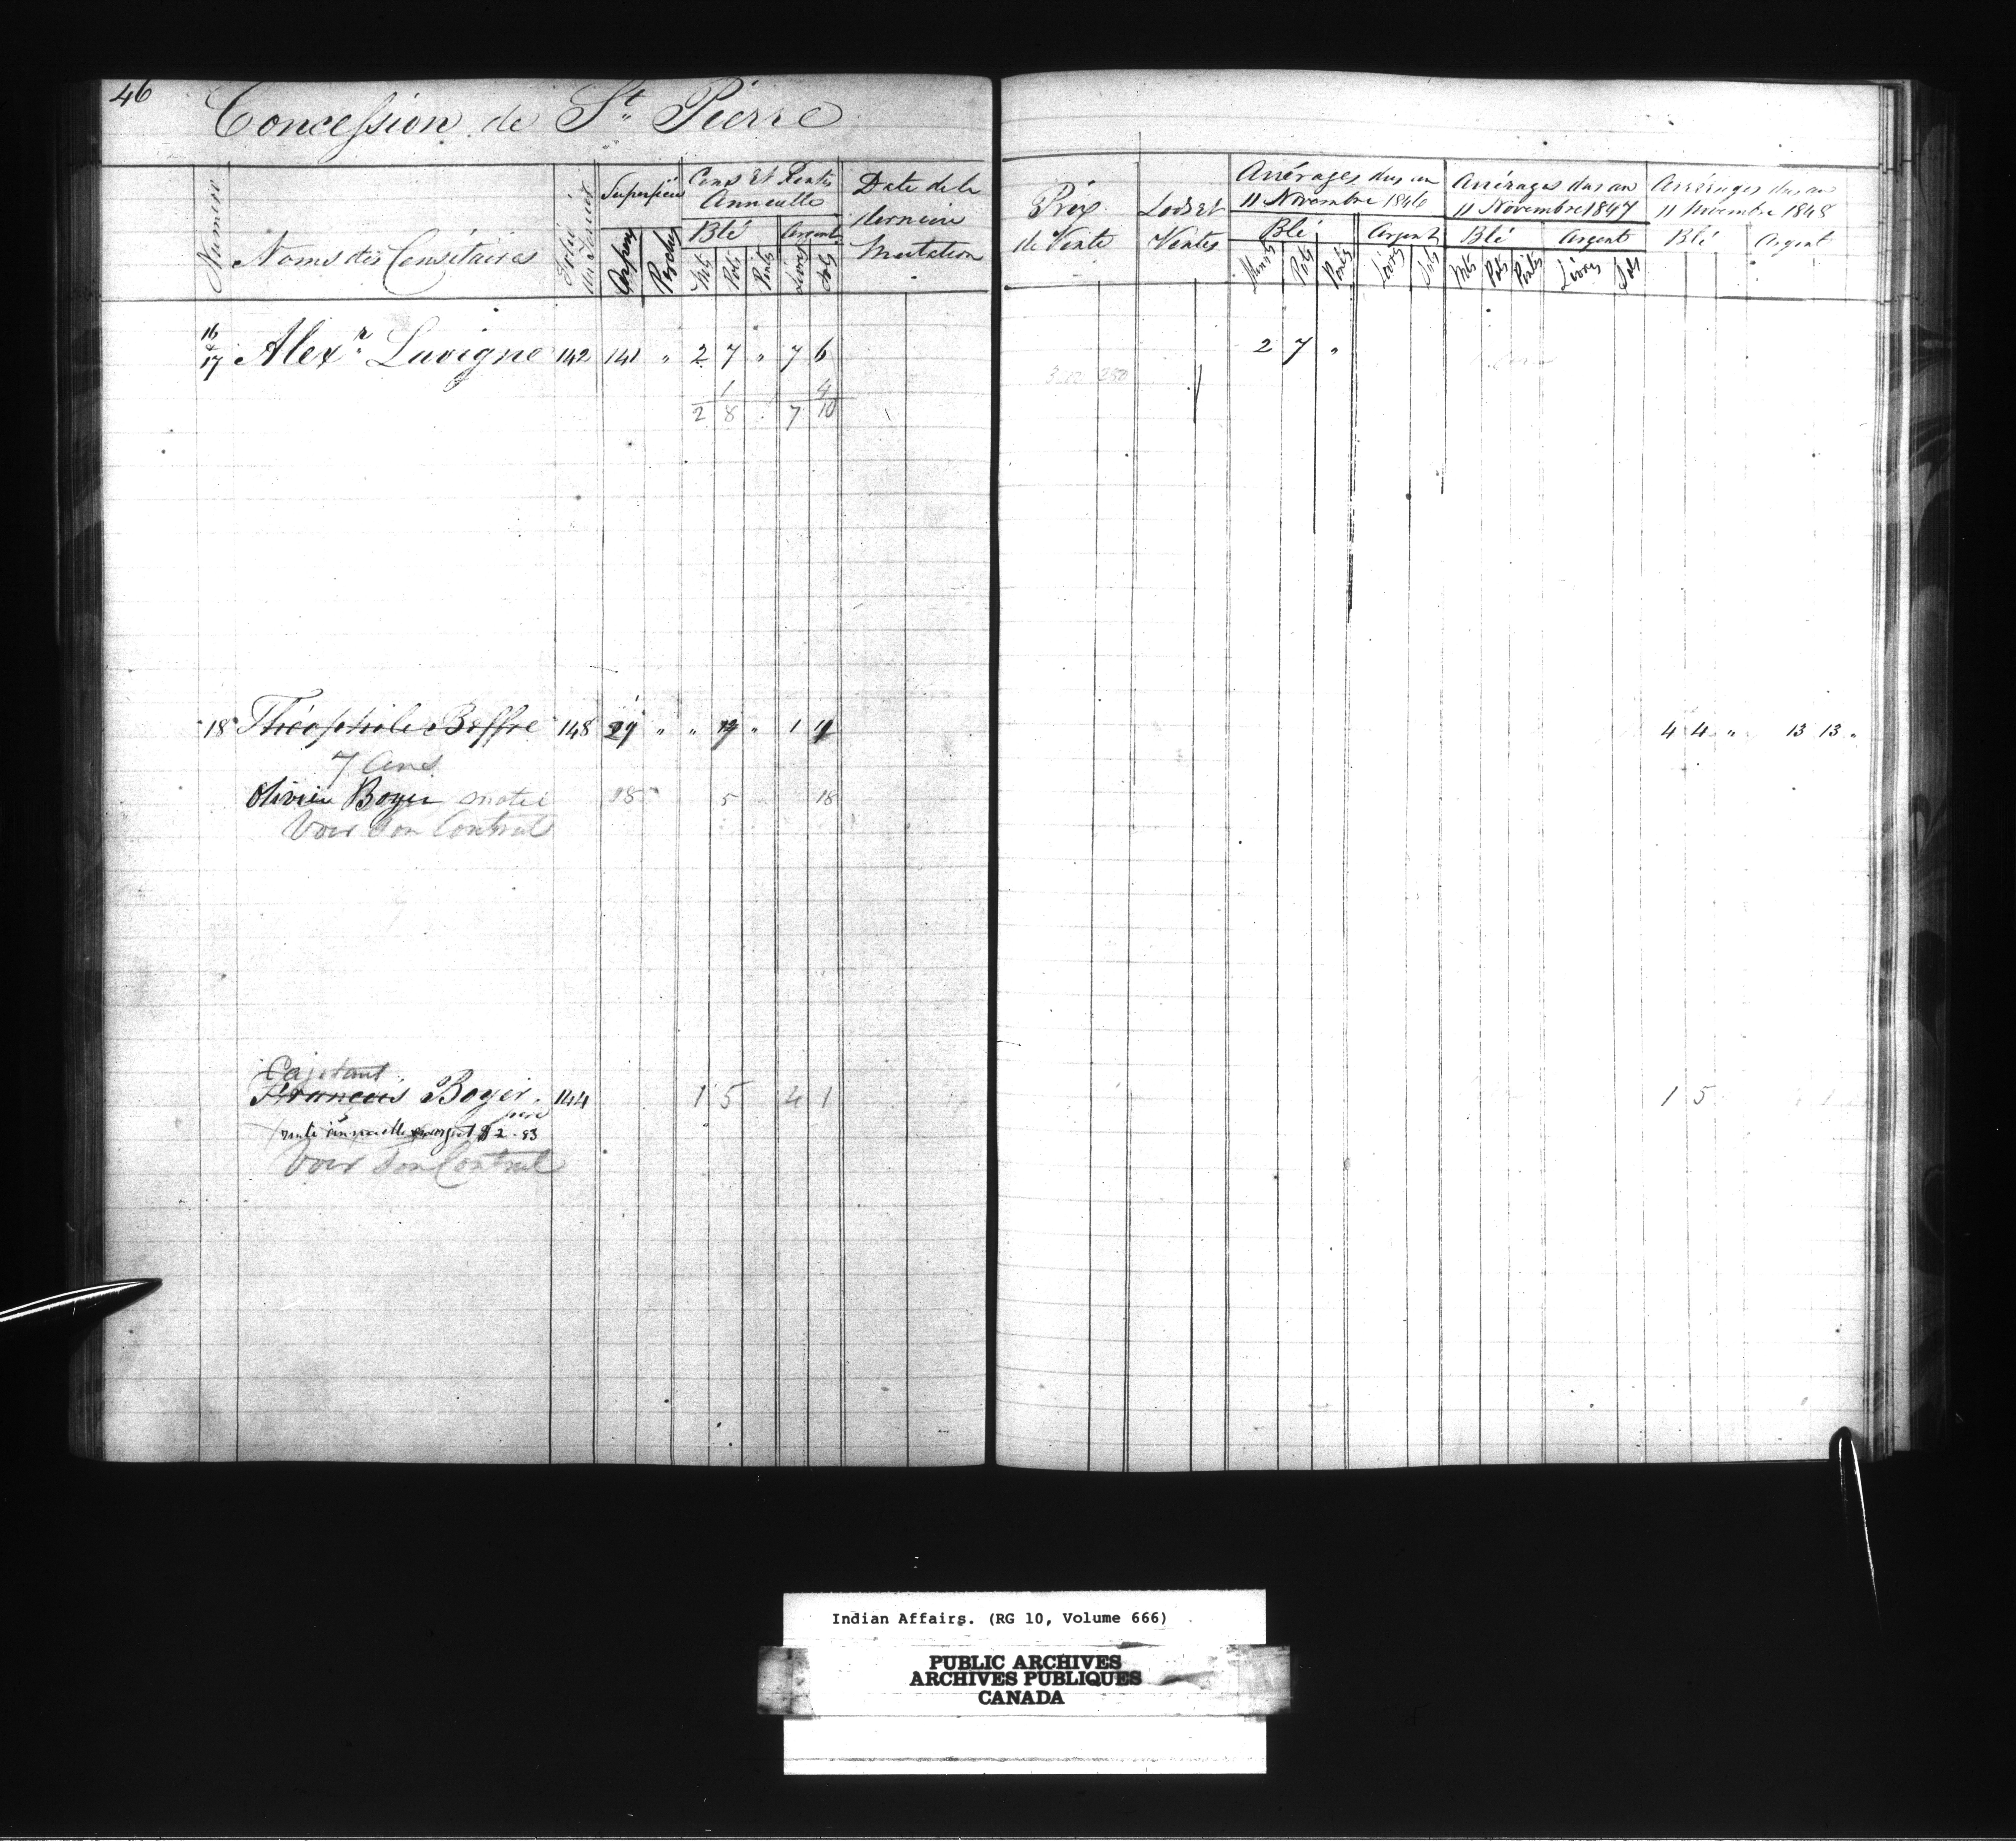 46
Concession de St. Pierre
Numéro
Noms des Censitaires
Folio du Terrier
Superficie
Arpens
Perches
Cens Et Rentes Annuelle
Blé
Argent
Mts
Pots
Pints
Livres
Sols
Date de la dernière Mutation
Prix de Vente
Lods Et Ventes
Arrérages dus au 11 Novembre 1846
Blé
Argent
Minots
Pots
Pints
Livres
Sols
Arrérages dus au 11 Novembre 1847
Blé
Argent
Mts
Pots
Pintes
Livres
Sols
Arrérages dus au 11 Novembre 1848
Blé
Argent
16 & 17 Alexr. Lavigne 142 141 " 2 7 " 7 6 2 7 "
1 4
2 8 7 10
18 Théophile 148 29 " " " 1 4 4 " 13 13 "
7 Ans
Olivier Boyer 18 5 18
Voir Son Contrat
Cajetant
Francois Boyer 144 1 5 4 1 1 5
père
rente annuelle en argent $ 2.83
Voir Son Contrat
Indian Affairs. (RG 10, Volume 666)
PUBLIC ARCHIVES
ARCHIVES PUBLIQUES
CANADA